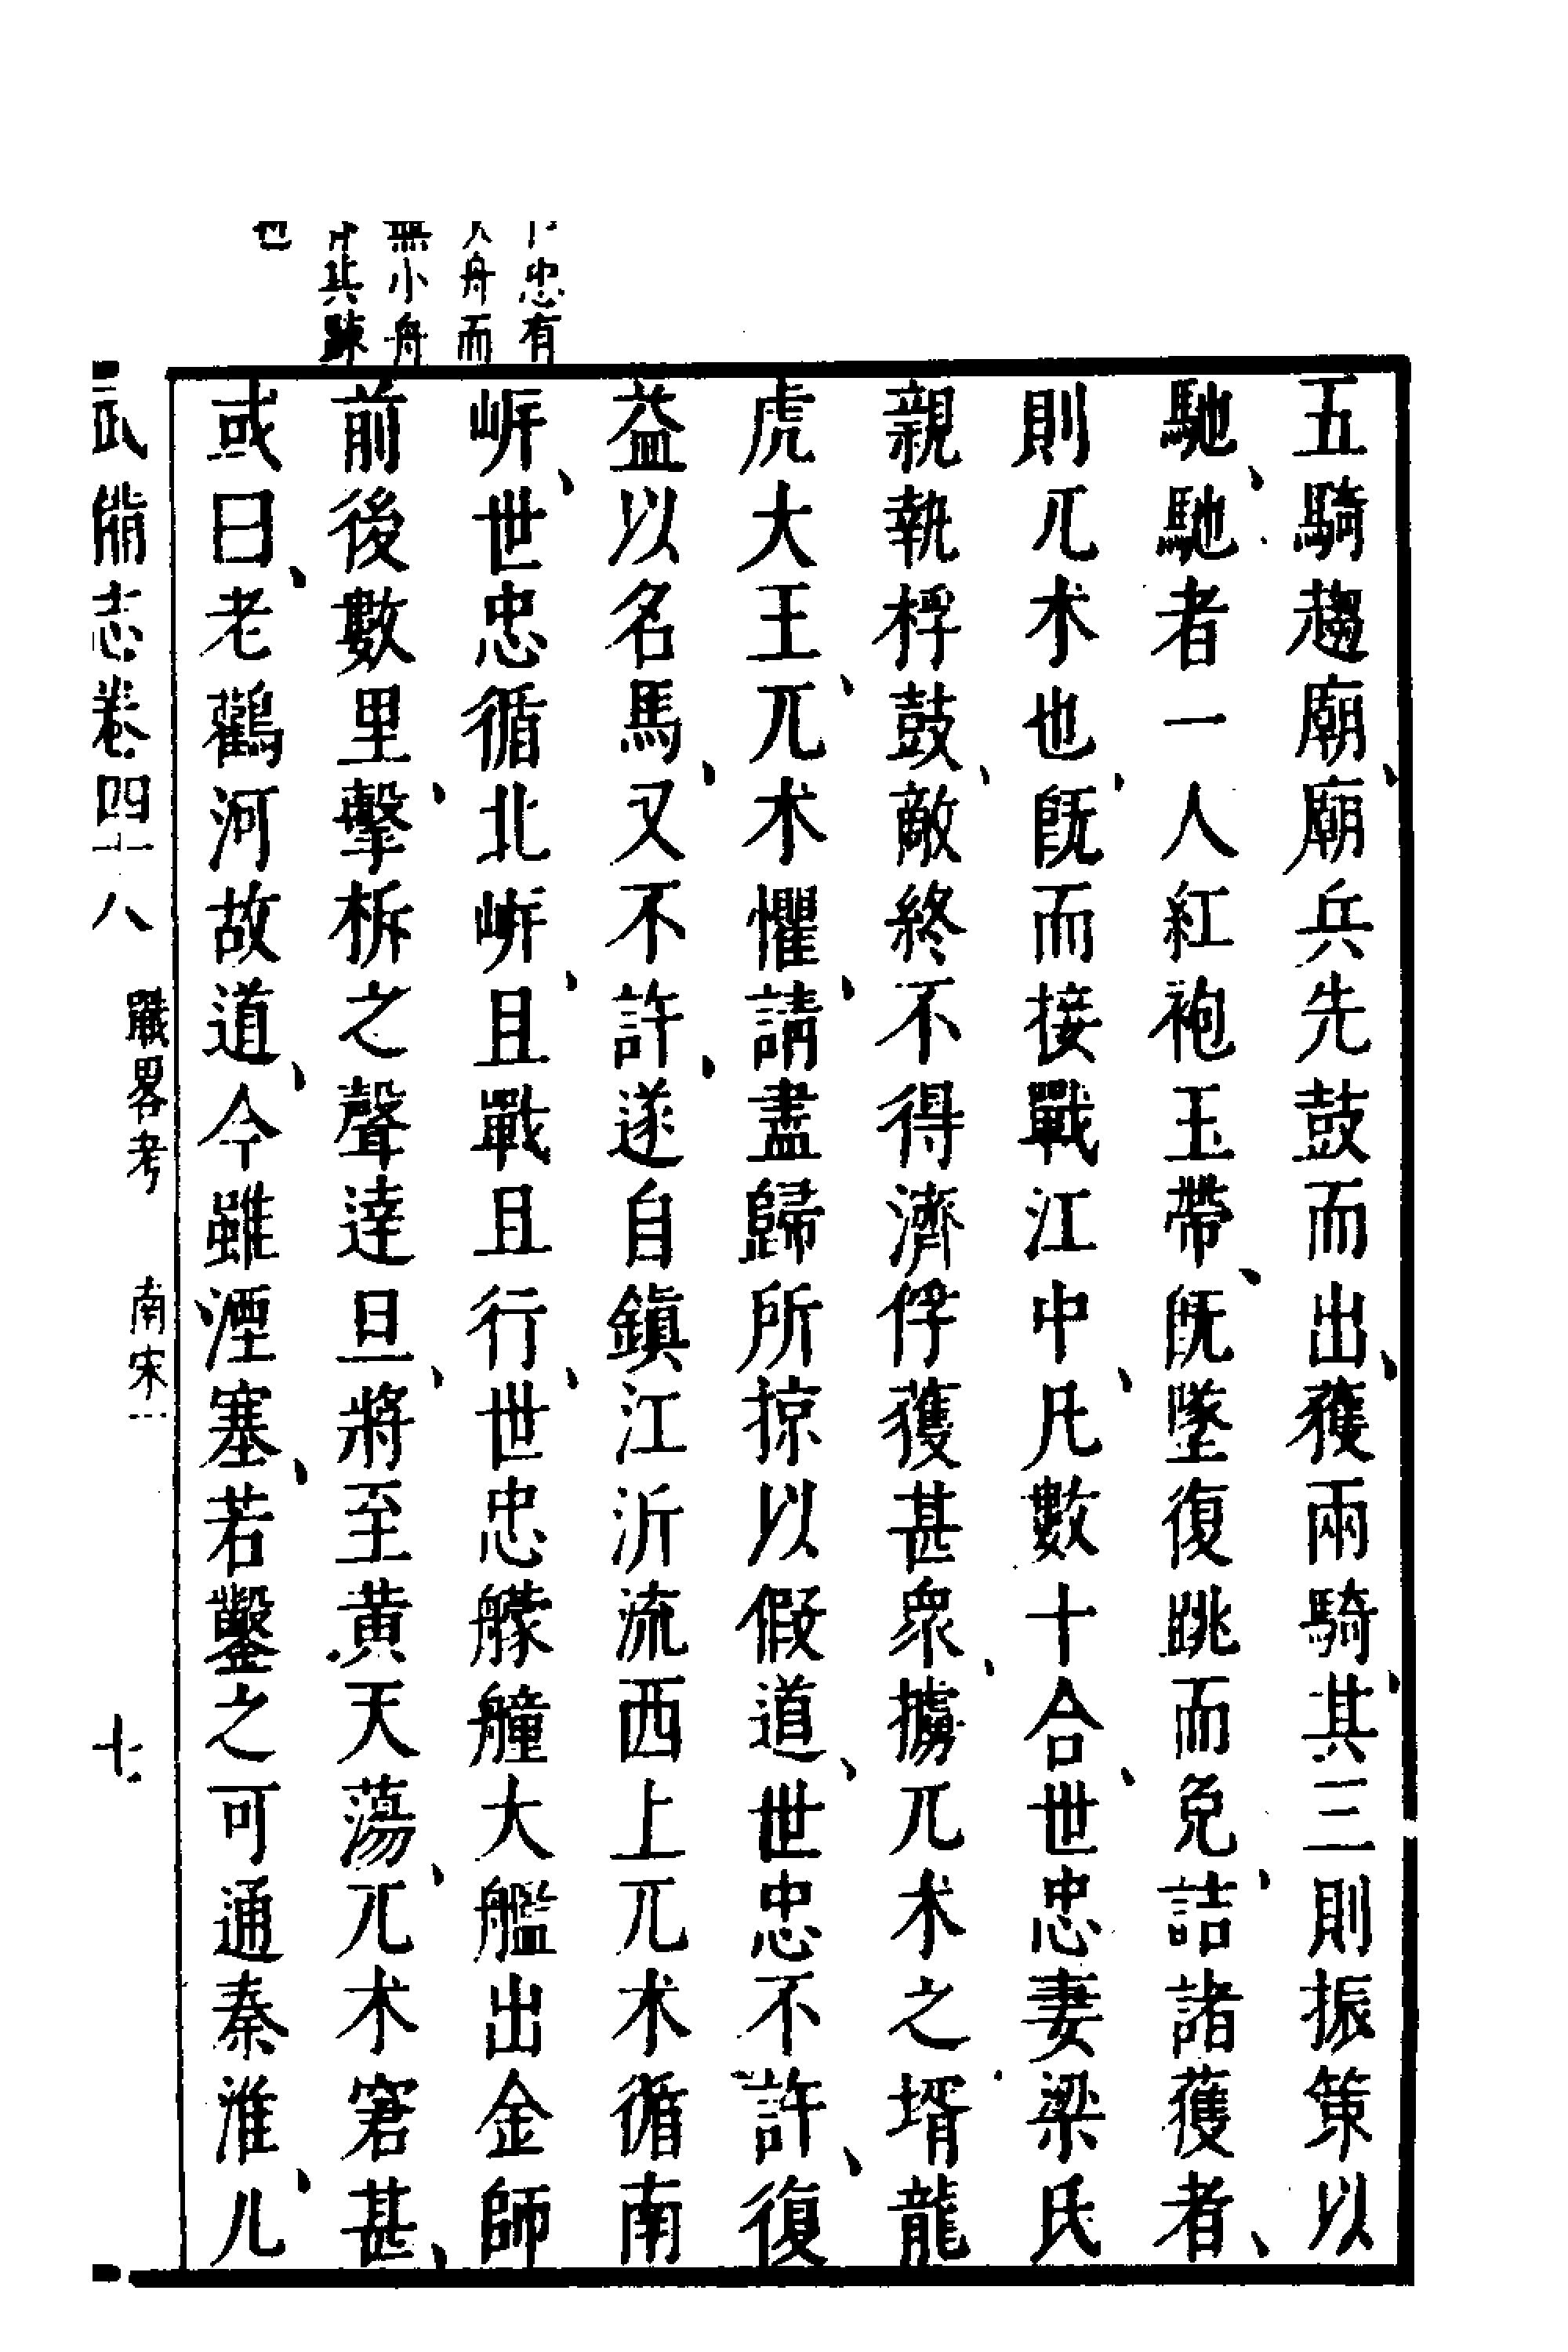 忠有
舟而
無小舟
其踈
也
五騎趨廟廟兵先鼓而出獲兩騎其三則振策以
馳馳者一人紅袍玉帶旣墜復跳而免詰諸獲者
則兀朮也旣而接戰江中凡數十合世忠妻梁氏
親執桴鼓敵終不得濟俘獲甚衆擄兀朮之壻龍
虎大王兀朮懼請盡歸所掠以假道世忠不許復
益以名馬又不許遂自鎮江泝流西上兀朮循南
岍世忠循北岍且戰且行世忠艨艟大艦出金師
前後數里擊柝之聲達旦將至黃天蕩兀朮窘甚
或曰老鸛河故道今雖湮塞若鑿之可通秦淮兀
武備志卷四十八 戰畧考 南宋一 七